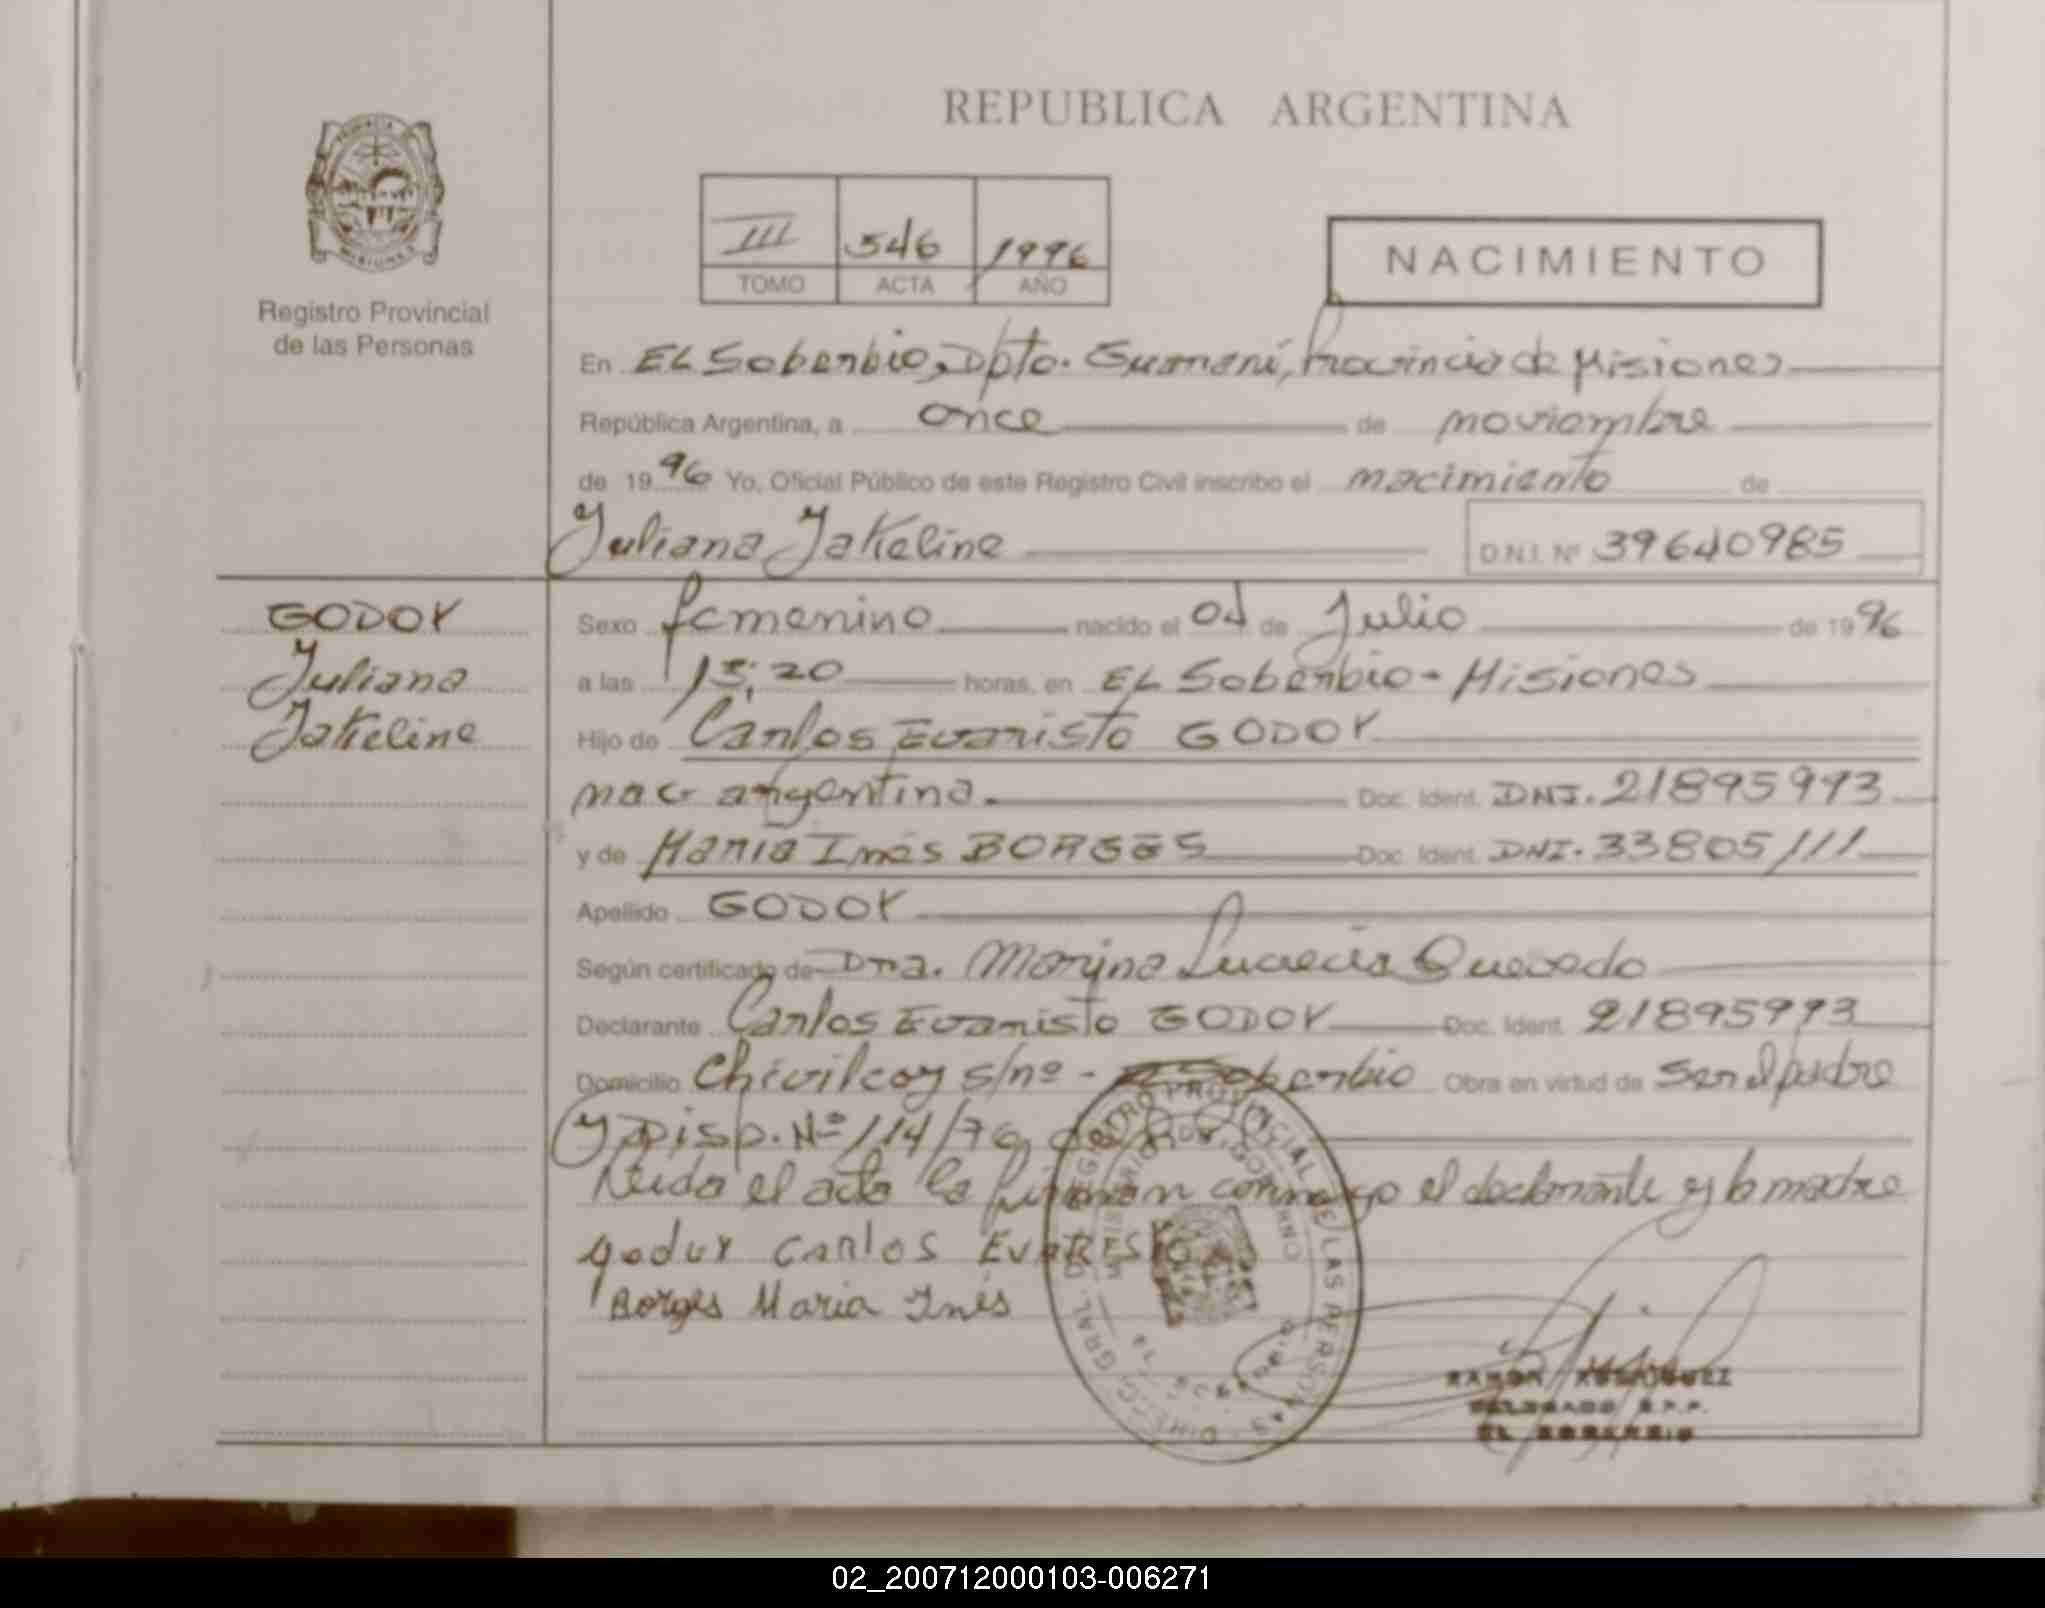 REPUBLICA ARGENTINA
PROVINCIA
MISIONES
Registro Provincial
de las Personas
III 546 1996
TOMO ACTA AÑO
NACIMIENTO
En EL Soberbio, Dpto. Guaraní, Provincia de Misiones
República Argentina, a once de noviembre
de 1996 Yo, Oficial Público de este Registro Civil inscribo el nacimiento de
Juliana Jakeline D.N.I. Nº 39640985
GODOY
Juliana
Jakeline
Sexo femenino nacido el de Julio de 1996
a las 13:20 horas, en EL Soberbio - Misiones
Hijo de Carlos Evaristo GODOY
nac. argentina. Doc. Ident. DNI. 21895993
y de María Inés BORGES Doc. Ident. DNI. 33805111
Apellido GODOY
Según certificado de Dra. Marina Lucrecia Quevedo
Declarante Carlos Evaristo GODOY Doc. Ident. 21895993
Domicilio Chivilcoy s/nº - El Soberbio Obra en virtud de ser el padre
y Disp. Nº 114/76
Leida el acta la firman conmigo el declarante y la madre
Godoy Carlos EVARISTO
Borges Maria Inés
DIREC. GRAL. DEL REGISTRO PROVINCIAL DE LAS PERSONAS
MINISTERIO DE GOBIERNO
RAMON RODRIGUEZ
DELEGADO R.P.P.
EL SOBERBIO
02_200712000103-006271